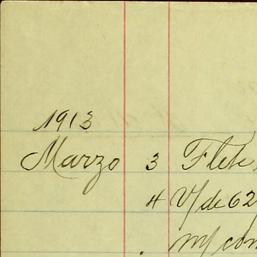 1913
Marzo 3 Flete
4 V/ de 62
m/ con